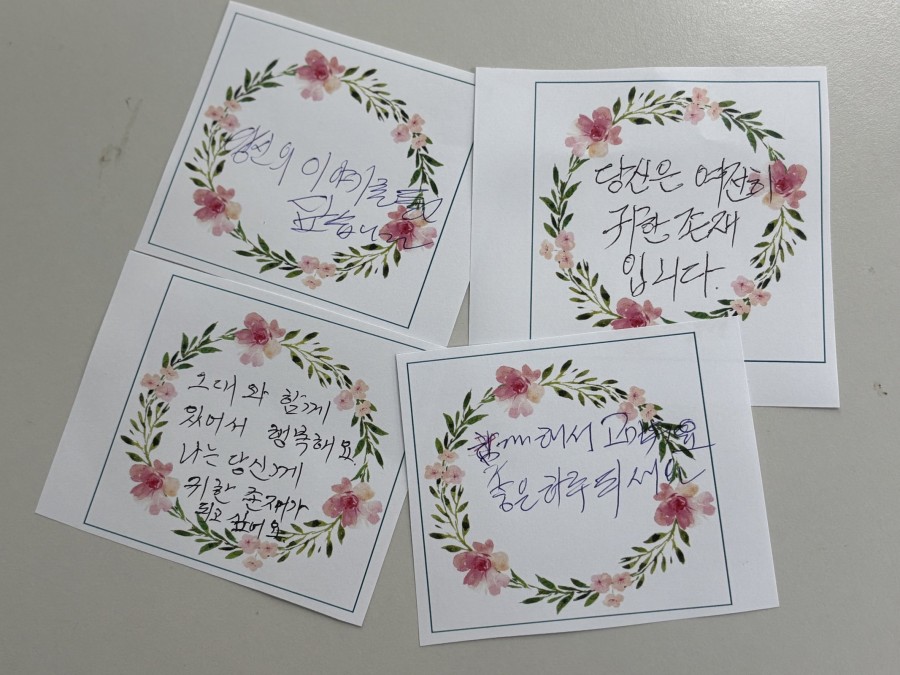 당신의 이야기를 듣고
싶습니다
당신은 여전히
귀한 존재
입니다.
그대와 함께
있어서 행복해요.
나는 당신께
귀한 존재가
되고 싶어요
함께해서 고마워요
좋은하루 되세요